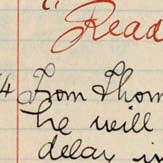 " Read
4 From Thom
he will
delay i